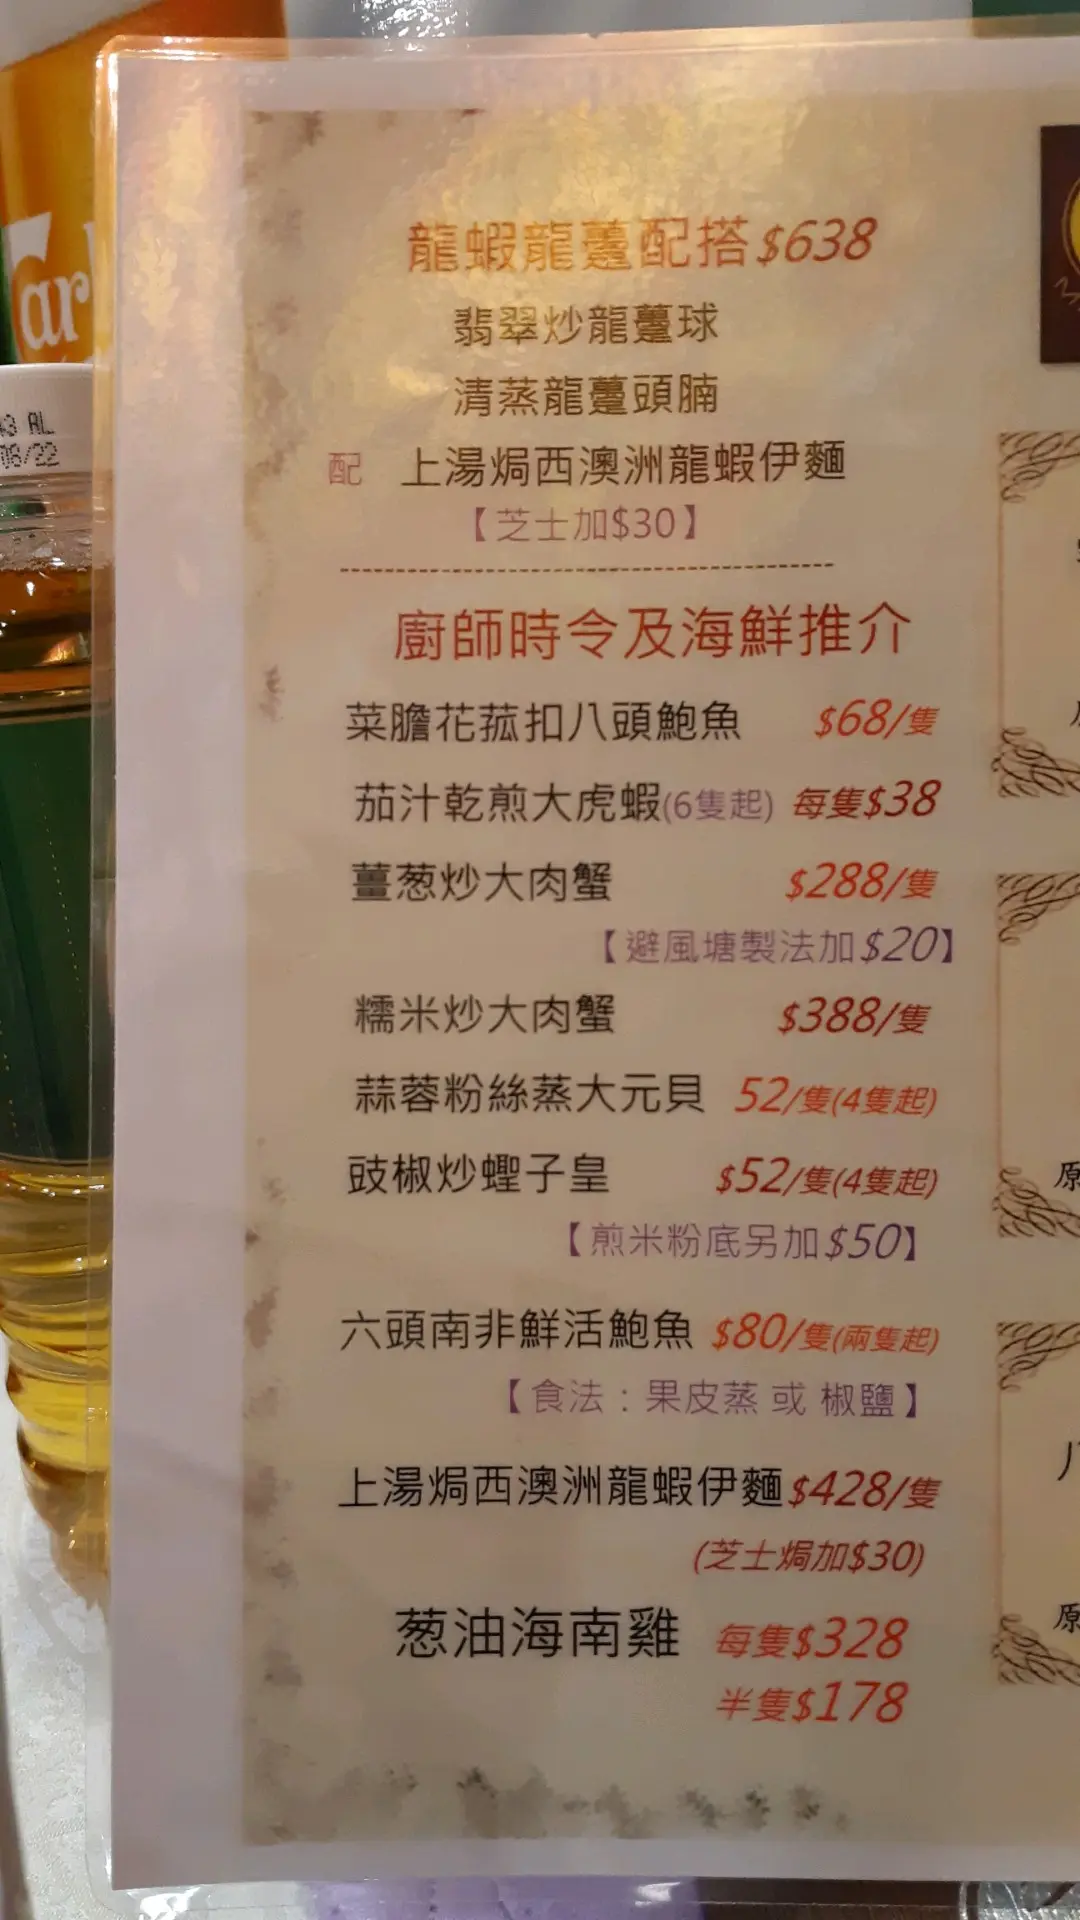 龍蝦龍躉配搭$638
翡翠炒龍躉球
清蒸龍躉頭腩
配 上湯焗西澳洲龍蝦伊麵
【芝士加$30】
廚師時令及海鮮推介
菜膽花菰扣八頭鮑魚 $68/隻
茄汁乾煎大虎蝦(6隻起) 每隻$38
薑葱炒大肉蟹 $288/隻
【避風塘製法加$20】
糯米炒大肉蟹 $388/隻
蒜蓉粉絲蒸大元貝 52/隻(4隻起)
豉椒炒蟶子皇 $52/隻(4隻起)
【煎米粉底另加$50】
六頭南非鮮活鮑魚 $80/隻(兩隻起)
【食法：果皮蒸 或 椒鹽】
上湯焗西澳洲龍蝦伊麵 $428/隻
(芝士焗加$30)
葱油海南雞 每隻$328
半隻$178
原
原